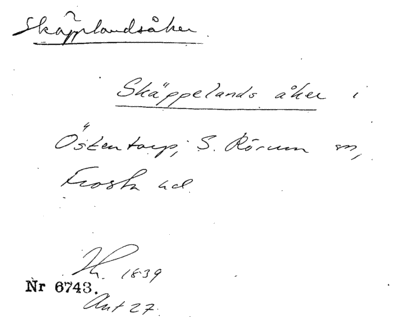 Skäpplandsåker
Skäppelands åker i
Östentorp, S. Rörum sn,
Frosta hd
1839
Nr 6743.
Akt 27